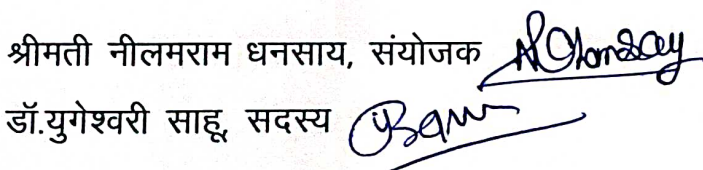 श्रीमती नीलमराम धनसाय, संयोजक
डॉ.युगेश्वरी साहू, सदस्य